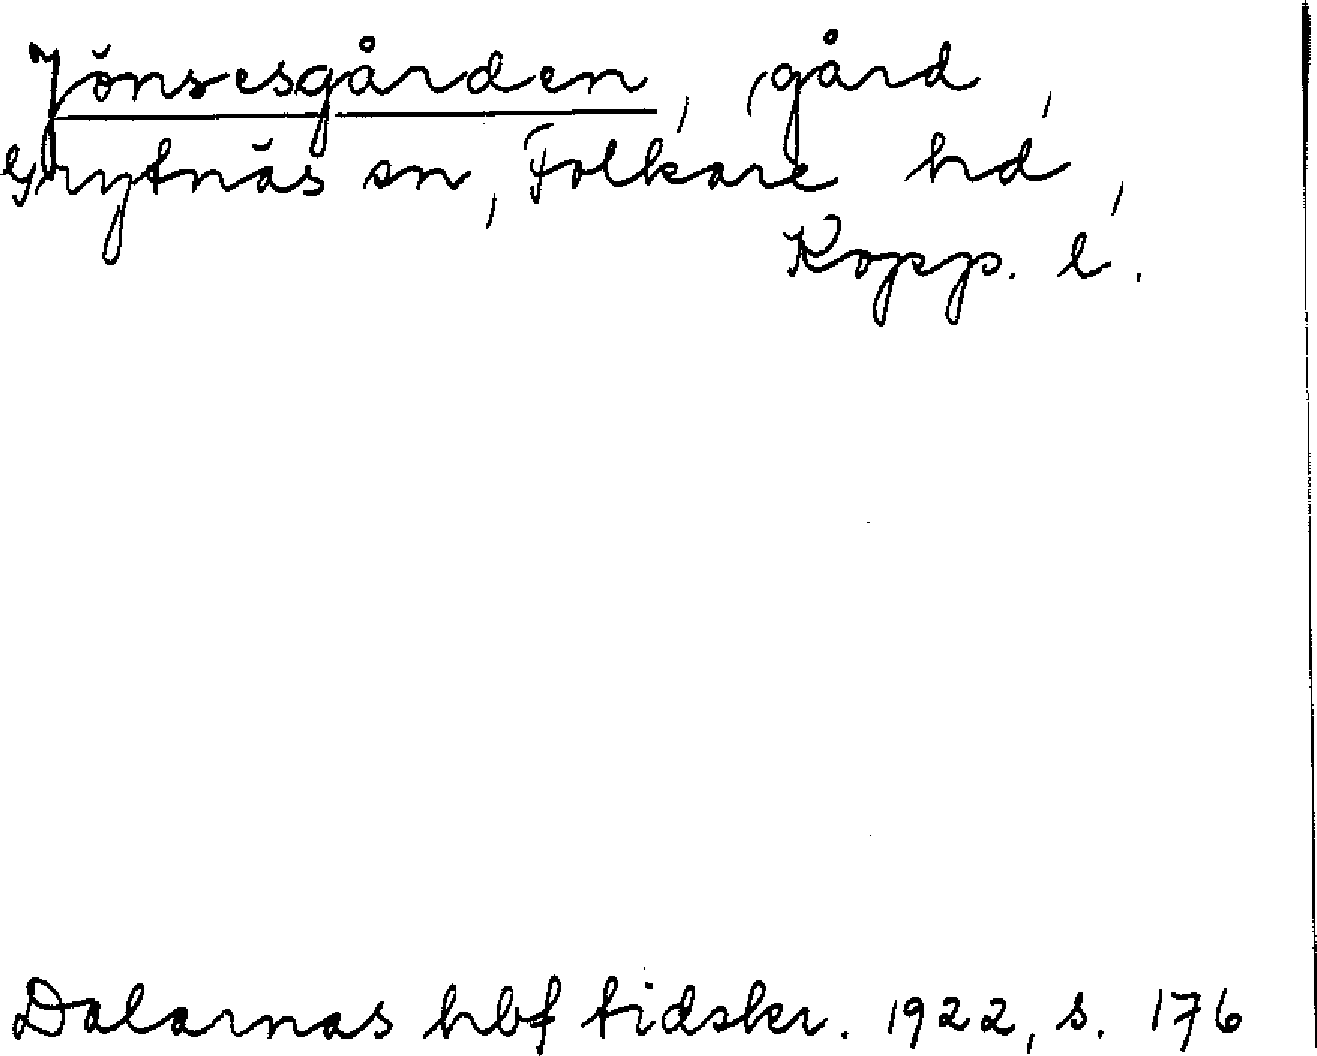 Jönsesgården, gård,
Grytnäs sn, Folkare hd,
Kopp. l.
Dalarnas hbf tidskr. 1922, s. 176